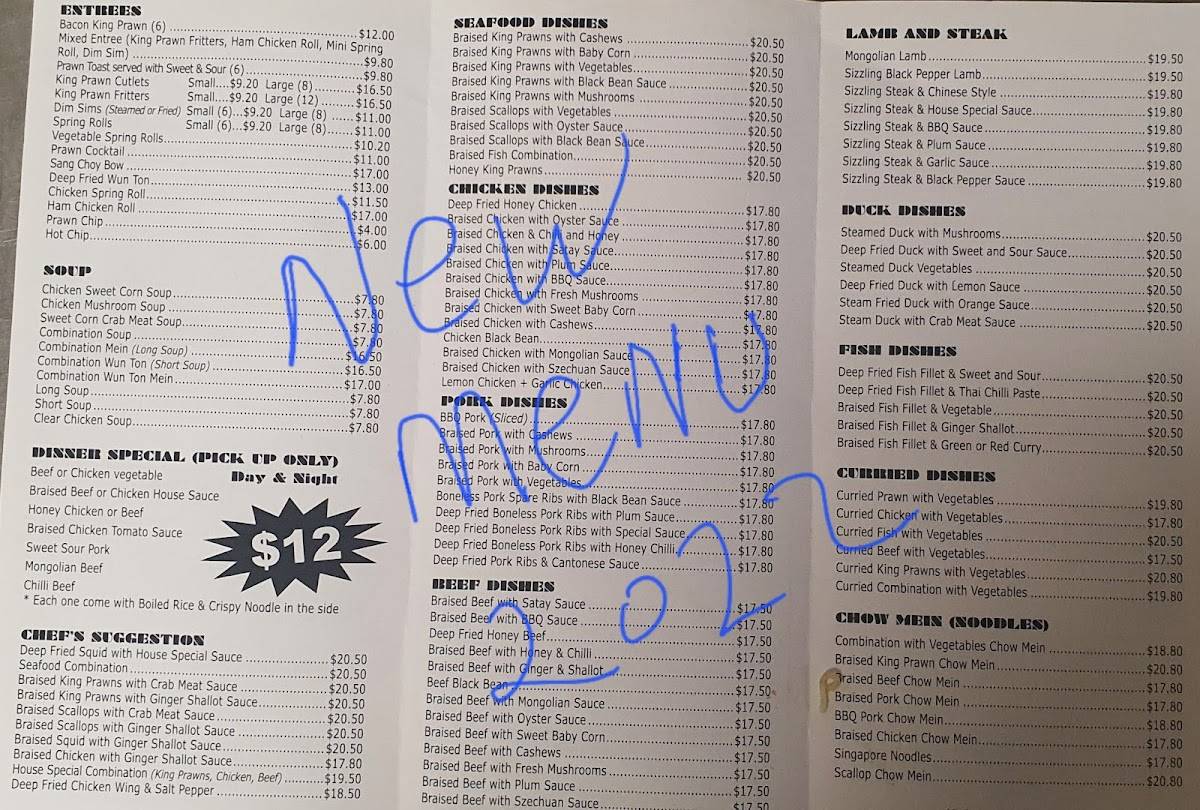 ENTREES
Bacon King Prawn (6) $12.00
Mixed Entree (King Prawn Fritters, Ham Chicken Roll, Mini Spring
Roll, Dim Sim) $9.80
Prawn Toast served with Sweet & Sour (6) $9.80
King Prawn Cutlets Small....$9.20 Large (8) $16.50
King Prawn Fritters Small....$9.20 Large (12) $16.50
Dim Sims (Steamed or Fried) Small (6)...$9.20 Large (8) $11.00
Spring Rolls Small (6)...$9.20 Large (8) $11.00
Vegetable Spring Rolls $10.20
Prawn Cocktail $11.00
Sang Choy Bow $17.00
Deep Fried Wun Ton $13.00
Chicken Spring Roll $11.50
Ham Chicken Roll $17.00
Prawn Chip $4.00
Hot Chip $6.00
SOUP
Chicken Sweet Corn Soup $7.80
Chicken Mushroom Soup $7.80
Sweet Corn Crab Meat Soup $7.80
Combination Soup $7.80
Combination Mein (Long Soup) $16.50
Combination Wun Ton (Short Soup) $16.50
Combination Wun Ton Mein $17.00
Long Soup $7.80
Short Soup $7.80
Clear Chicken Soup $7.80
DINNER SPECIAL (PICK UP ONLY)
Day & Night
Beef or Chicken vegetable
Braised Beef or Chicken House Sauce
Honey Chicken or Beef
Braised Chicken Tomato Sauce
Sweet Sour Pork
Mongolian Beef
Chilli Beef
$12
* Each one come with Boiled Rice & Crispy Noodle in the side
CHEF'S SUGGESTION
Deep Fried Squid with House Special Sauce $20.50
Seafood Combination $20.50
Braised King Prawns with Crab Meat Sauce $20.50
Braised King Prawns with Ginger Shallot Sauce $20.50
Braised Scallops with Crab Meat Sauce $20.50
Braised Scallops with Ginger Shallot Sauce $20.50
Braised Squid with Ginger Shallot Sauce $20.50
Braised Chicken with Ginger Shallot Sauce $17.80
House Special Combination (King Prawns, Chicken, Beef) $19.50
Deep Fried Chicken Wing & Salt Pepper $18.50
SEAFOOD DISHES
Braised King Prawns with Cashews $20.50
Braised King Prawns with Baby Corn $20.50
Braised King Prawns with Vegetables $20.50
Braised King Prawns with Black Bean Sauce $20.50
Braised King Prawns with Mushrooms $20.50
Braised Scallops with Vegetables $20.50
Braised Scallops with Oyster Sauce $20.50
Braised Scallops with Black Bean Sauce $20.50
Braised Fish Combination $20.50
Honey King Prawns $20.50
CHICKEN DISHES
Deep Fried Honey Chicken $17.80
Braised Chicken with Oyster Sauce $17.80
Braised Chicken & Chilli and Honey $17.80
Braised Chicken with Satay Sauce $17.80
Braised Chicken with Plum Sauce $17.80
Braised Chicken with BBQ Sauce $17.80
Braised Chicken with Fresh Mushrooms $17.80
Braised Chicken with Sweet Baby Corn $17.80
Braised Chicken with Cashews $17.80
Chicken Black Bean $17.80
Braised Chicken with Mongolian Sauce $17.80
Braised Chicken with Szechuan Sauce $17.80
Lemon Chicken + Garlic Chicken $17.80
PORK DISHES
BBQ Pork (Sliced) $17.80
Braised Pork with Cashews $17.80
Braised Pork with Mushrooms $17.80
Braised Pork with Baby Corn $17.80
Braised Pork with Vegetables $17.80
Boneless Pork Spare Ribs with Black Bean Sauce $17.80
Deep Fried Boneless Pork Ribs with Plum Sauce $17.80
Deep Fried Boneless Pork Ribs with Special Sauce $17.80
Deep Fried Boneless Pork Ribs with Honey Chilli $17.80
Deep Fried Pork Ribs & Cantonese Sauce $17.80
BEEF DISHES
Braised Beef with Satay Sauce $17.50
Braised Beef with BBQ Sauce $17.50
Deep Fried Honey Beef $17.50
Braised Beef with Honey & Chilli $17.50
Braised Beef with Ginger & Shallot $17.50
Beef Black Bean $17.50
Braised Beef with Mongolian Sauce $17.50
Braised Beef with Oyster Sauce $17.50
Braised Beef with Sweet Baby Corn $17.50
Braised Beef with Cashews $17.50
Braised Beef with Fresh Mushrooms $17.50
Braised Beef with Plum Sauce $17.50
Braised Beef with Szechuan Sauce $17.50
LAMB AND STEAK
Mongolian Lamb $19.50
Sizzling Black Pepper Lamb $19.50
Sizzling Steak & Chinese Style $19.80
Sizzling Steak & House Special Sauce $19.80
Sizzling Steak & BBQ Sauce $19.80
Sizzling Steak & Plum Sauce $19.80
Sizzling Steak & Garlic Sauce $19.80
Sizzling Steak & Black Pepper Sauce $19.80
DUCK DISHES
Steamed Duck with Mushrooms $20.50
Deep Fried Duck with Sweet and Sour Sauce $20.50
Steamed Duck Vegetables $20.50
Deep Fried Duck with Lemon Sauce $20.50
Steam Fried Duck with Orange Sauce $20.50
Steam Duck with Crab Meat Sauce $20.50
FISH DISHES
Deep Fried Fish Fillet & Sweet and Sour $20.50
Deep Fried Fish Fillet & Thai Chilli Paste $20.50
Braised Fish Fillet & Vegetable $20.50
Braised Fish Fillet & Ginger Shallot $20.50
Braised Fish Fillet & Green or Red Curry $20.50
CURRIED DISHES
Curried Prawn with Vegetables $19.80
Curried Chicken with Vegetables $17.80
Curried Fish with Vegetables $20.50
Curried Beef with Vegetables $17.50
Curried King Prawns with Vegetables $20.80
Curried Combination with Vegetables $19.80
CHOW MEIN (NOODLES)
Combination with Vegetables Chow Mein $18.80
Braised King Prawn Chow Mein $20.80
Braised Beef Chow Mein $17.80
Braised Pork Chow Mein $17.80
BBQ Pork Chow Mein $18.80
Braised Chicken Chow Mein $17.80
Singapore Noodles $17.80
Scallop Chow Mein $20.80
New
MENU
2022